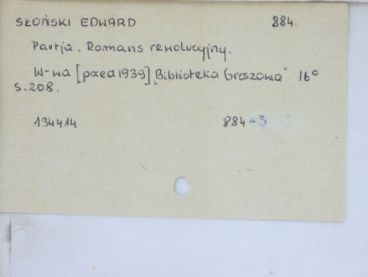 SŁOŃSKI EDWARD 884.
Partja. Romans rewolucyjny.
W-wa [przed 1939] "Biblioteka Groszowa" 16°
S. 208.
134414 884-3